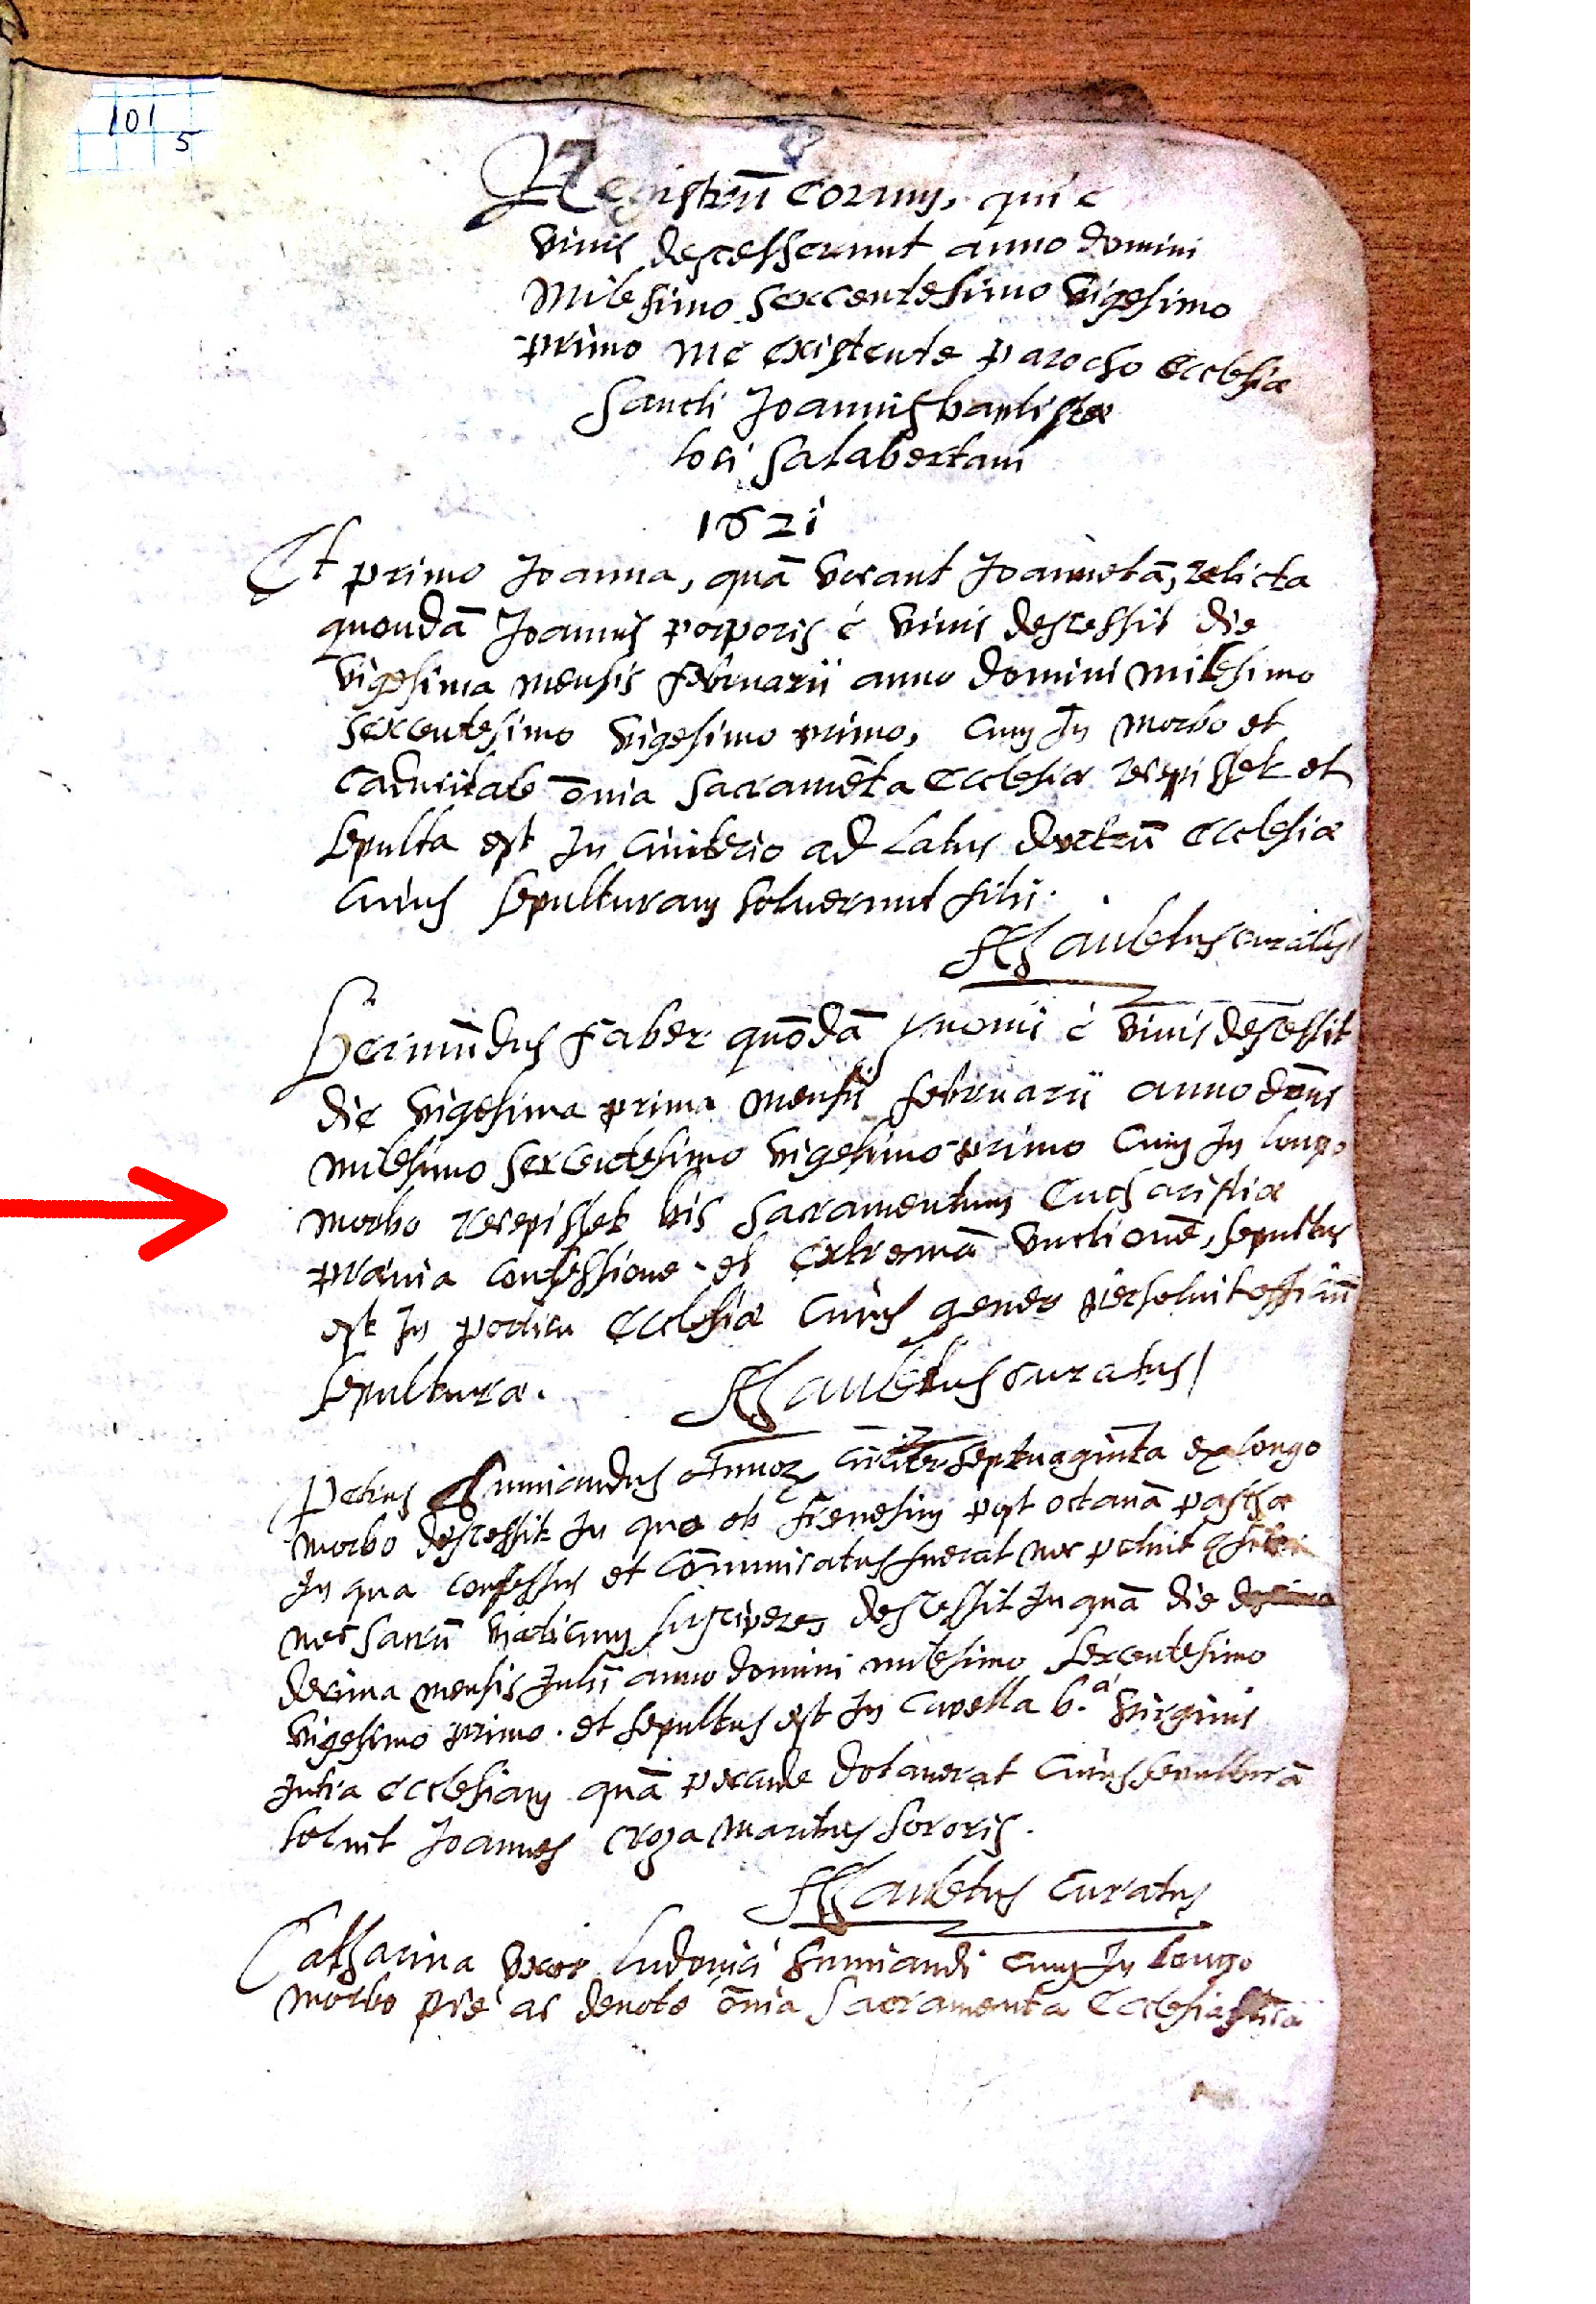 101
5
Registrũ eorum, qui è
vivis descesserunt anno domini
milesimo sexcentesimo vigesimo
primo me existente parocho Ecclesiæ
Sancti Joannisbaptistæ
loci Salabertani
1621
Et primo Joanna, quã vocant Joannetã, relicta
quondã Joannis porporis è vivis descessit die
vigesima mensis februarii anno domini milesimo
sexcentesimo vigesimo primo, cum In morbo et
caducitate õnia sacramẽta Ecclesiæ recepisset et
sepulta est In Cimiterio ad Latus dextrũ Ecclesiæ
cuius sepulturam solverunt filii.
curatus
faber quõdã è vivis descessit
die vigesima prima mensis februarii anno dõni
milesimo sexcentesimo vigesimo primo cum In longo
morbo recepisset bis sacramentum Eucharistiæ
prævia confessione et extremã unctionẽ, sepultus
est In porticu Ecclesiæ cuius gener persolvit officiũ
sepulturæ.
curatus
Petrus annoꝝ circiter septuaginta ex longo
morbo descessit In quo ob frenesim post octavã paschæ
In qua confessus et cõmunicatus fuerat nec potuit
nec sacrũ viaticum suscipere, descessit Inquã die
decima mensis Julii anno domini milesimo sexcentesimo
vigesimo primo. et sepultus est In Capella b.ª virginis
Intra ecclesiam quã dotaverat cuius sepulturã
solvit Joannes maritus sororis.
curatus
Catharina uxor Ludovici cum In longo
morbo piè ac devote õnia sacramenta Ecclesiastica